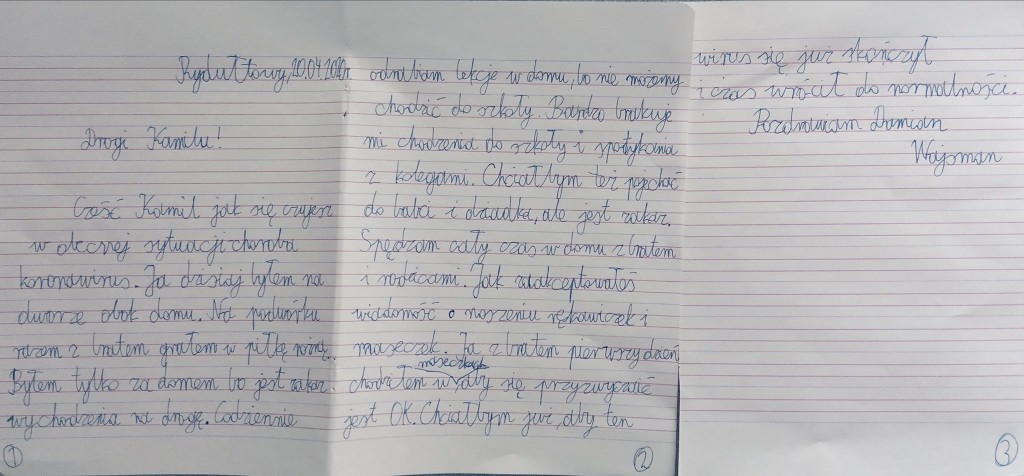 Rydułtowy, 20.04.2020r.
Drogi Kamilu!
Cześć Kamil jak się czujesz
w obecnej sytuacji choroba
koronawirus. Ja dzisiaj byłem na
dworze obok domu. Na podwórku
razem z bratem grałem w piłkę nożną.
Byłem tylko za domem bo jest zakaz
wychodzenia na drogę. Codziennie
1
odrabiam lekcje w domu, bo nie możemy
chodzić do szkoły. Bardzo brakuje
mi chodzenia do szkoły i spotykania
z kolegami. Chciałbym też pojechać
do babci i dziadka, ale jest zakaz.
Spędzam cały czas w domu z bratem
i rodzicami. Jak zaakceptowałeś
wiadomość o noszeniu rękawiczek i
maseczek. Ja z bratem pierwszy dzień
maseczkach
chodziłem w żaby się przyzwyczaić
jest OK. Chciałbym już, aby ten
2
wirus się już skończył
i czas wrócił do normalności.
Pozdrawiam Damian
Wajsman
3